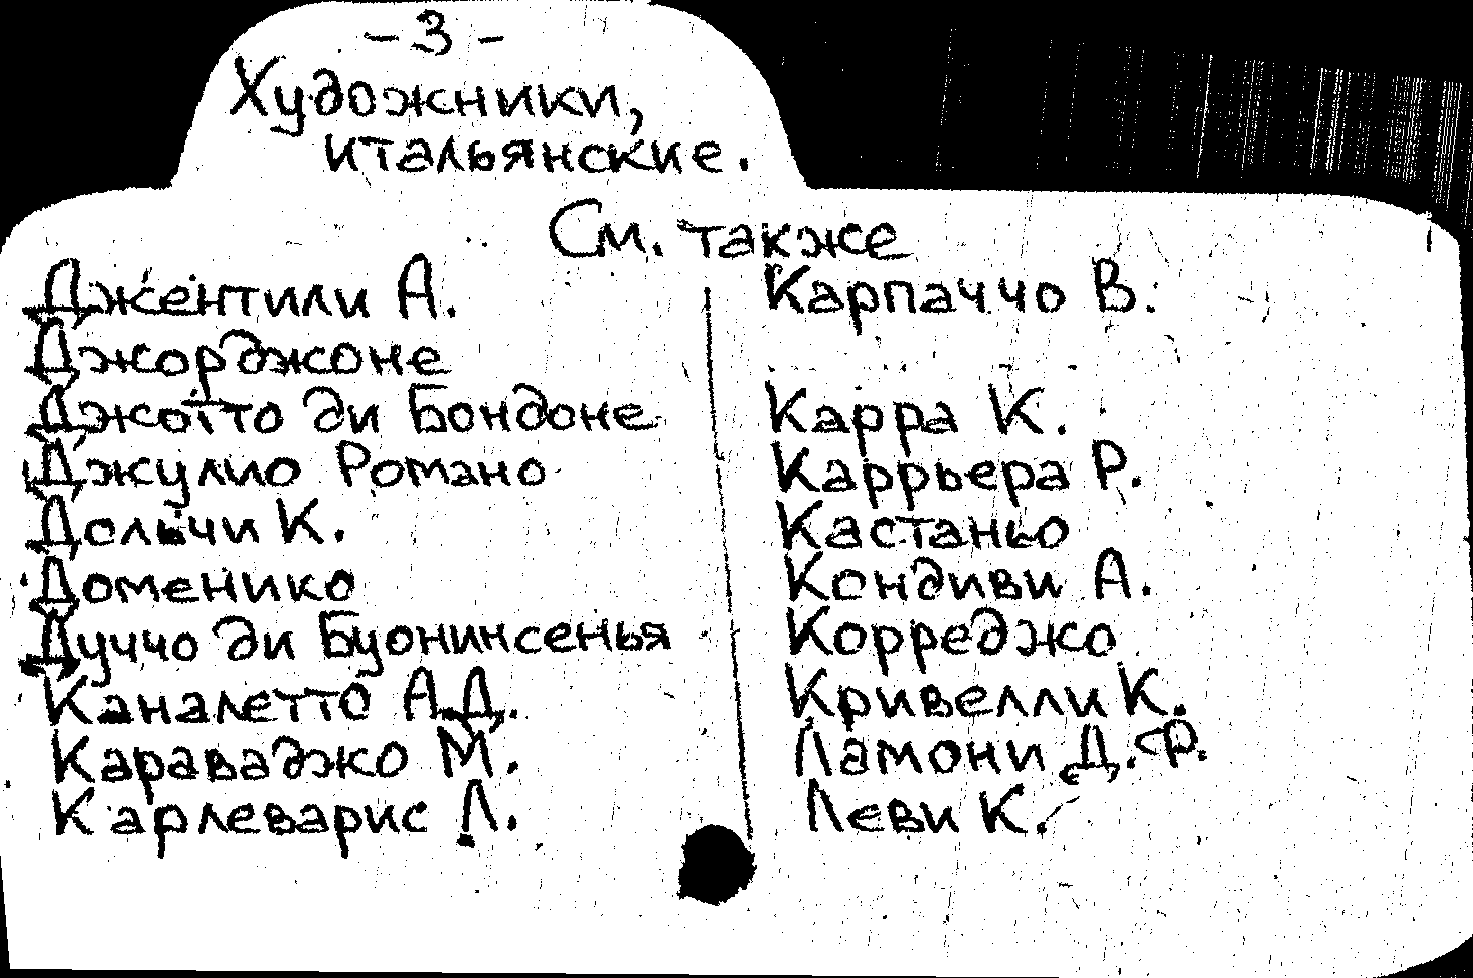 - 3 -
Художники,
итальянские.
См. также
Джентили А.
Джорджоне
Джотто ди Бондоне
Джулио Романо
Дольчи К.
Доменико
Дуччо ди Буонинсенья
Каналетто А.Д.
Караваджо М.
Карлеварис Л.
Карпаччо В.
Карра К.
Каррьера Р.
Кастаньо
Кондиви А.
Корреджо
Кривелли К.
Ламони Д.Ф.
Леви К.